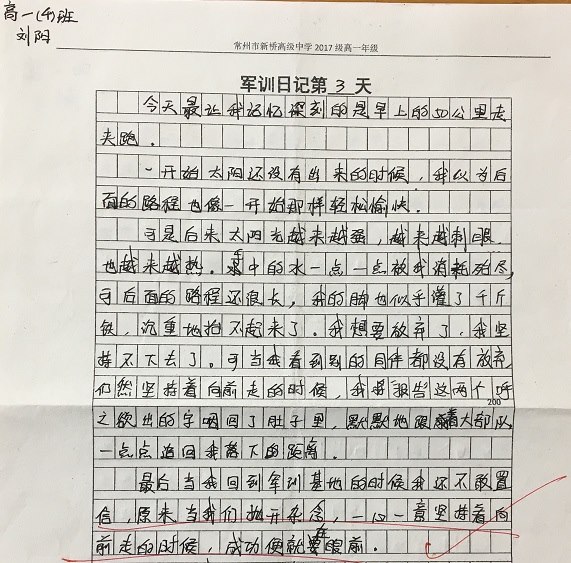 高一(4)班
刘阳
常州市新桥高级中学2017级高一年级
军训日记第3天
今天最让我记忆深刻的是早上的50公里走
夹跑.
一开始太阳还没有出来的时候,我以为后
面的路程也像一开始那样轻松愉快.
可是后来太阳光越来越强,越来越刺眼.
也越来越热.手中的水一点一点被我消耗殆尽,
可后面的路程还很长,我的脚也似乎灌了千斤
铁,沉重地抬不起来了.我想要放弃了,我坚
持不下去了.可当我看到别的同伴都没有放弃,
仍然坚持着向前走的时候,我将报告这两个呼
200
之欲出的字咽回了肚子里,默默地跟着大部队
一点点追回我落下的距离.
最后当我回到军训基地的时候我还不敢置
信,原来当我们抛开杂念,一心一意坚持着向
前走的时候,成功便就在眼前.